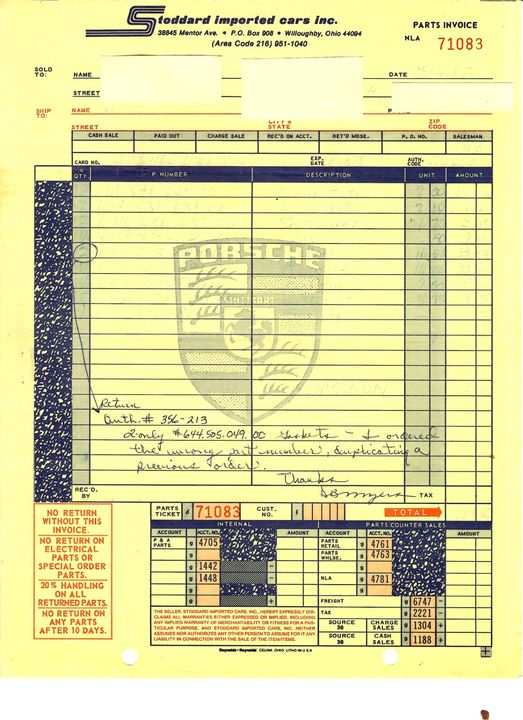 Stoddard imported cars inc.
38845 Mentor Ave. • P.O. Box 908 • Willoughby, Ohio 44094
(Area Code 216) 951-1040
PARTS INVOICE
NLA 71083
SOLD TO:
NAME
DATE
STREET
SHIP TO:
NAME
STREET
CITY & STATE
ZIP CODE
CASH SALE PAID OUT CHARGE SALE REC'D ON ACCT. RET'D MDSE. P. O. NO. SALESMAN
CARD NO. EXP. DATE AUTH. CODE
QTY. P NUMBER DESCRIPTION UNIT AMOUNT
PORSCHE
STUTTGART
Return
Auth. # 356-213
2 only #644.505.049.00 gaskets - I ordered
the wrong part number, duplicating a
previous order.
Thanks
REC'D. BY
TAX
NO RETURN
WITHOUT THIS
INVOICE.
NO RETURN ON
ELECTRICAL
PARTS OR
SPECIAL ORDER
PARTS.
20% HANDLING
ON ALL
RETURNED PARTS.
NO RETURN ON
ANY PARTS
AFTER 10 DAYS.
PARTS TICKET d 71083 CUST. NO. f TOTAL
INTERNAL PARTS COUNTER SALES
ACCOUNT ACCT. NO. AMOUNT ACCOUNT ACCT. NO. AMOUNT
P & A PARTS g 4705 PARTS RETAIL g 4761
g PARTS WHLSE. g 4763
g 1442 –
g 1448 – NLA g 4781
g
g + FREIGHT g 6747 –
TAX g 2221 –
SOURCE 38 CHARGE SALES g 1304 +
SOURCE 36 CASH SALES g 1188 +
THE SELLER, STODDARD IMPORTED CARS, INC., HEREBY EXPRESSLY DIS-
CLAIMS ALL WARRANTIES EITHER EXPRESSED OR IMPLIED, INCLUDING
ANY IMPLIED WARRANTY OF MERCHANTABILITY OR FITNESS FOR A PAR-
TICULAR PURPOSE, AND STODDARD IMPORTED CARS, INC. NEITHER
ASSUMES NOR AUTHORIZES ANY OTHER PERSON TO ASSUME FOR IT ANY
LIABILITY IN CONNECTION WITH THE SALE OF THE ITEM/ITEMS.
Reynolds + Reynolds CELINA, OHIO LITHO IN U S A